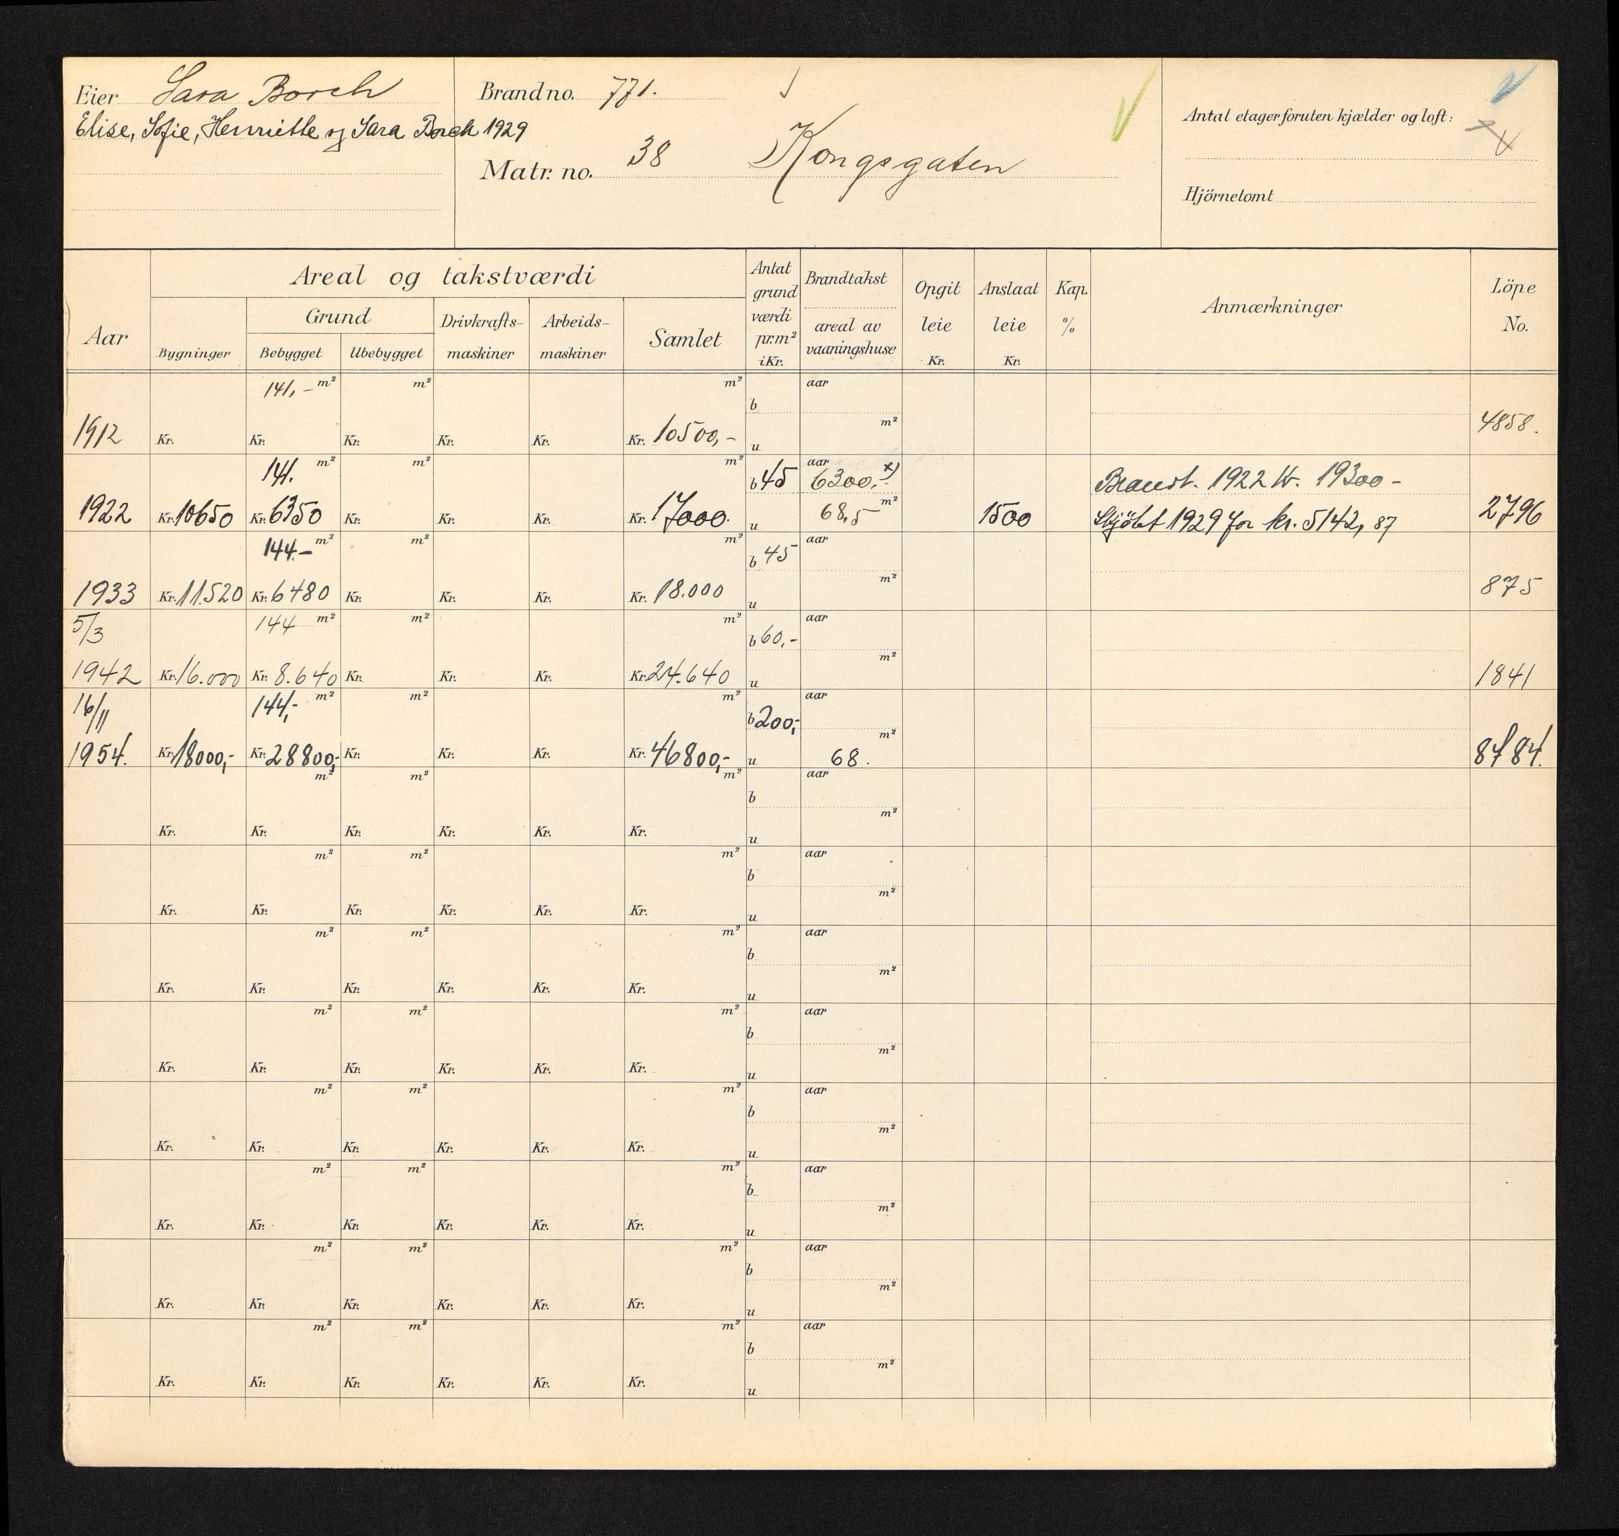 Eier Sara Borch
Elise, Sofie, Henriette og Sara Borch 1929
Brand no. 771.
Matr. no. 38 Kongsgaten
Antal etager foruten kjælder og loft:
Hjörnetomt
Aar
Areal og takstværdi
Grund
Bygninger
Bebygget
Ubebygget
Drivkrafts-
maskiner
Arbeids-
maskiner
Samlet
Antat
grund
værdi
pr. m²
i Kr.
Brandtakst
areal av
vaaningshuse
Opgit
leie
Kr.
Anslaat
leie
Kr.
Kap.
%
Anmærkninger
Löpe
No.
141,- m² m² m² b aar
1912 Kr. Kr. Kr. Kr. Kr. Kr. 10500,- u m² 4858.
141. m² m² m² b 45 aar 6300,- x) Brandt. 1922 kr. 19300-
1922 Kr. 10650 Kr. 6350 Kr. Kr. Kr. Kr. 17000. u 68,5 m² 1500 Skjöbt 1929 for kr. 5142, 87 2796
144.- m² m² m² b 45 aar
1933 Kr. 11.520 Kr. 6480 Kr. Kr. Kr. Kr. 18.000 u m² 875
5/3 144 m² m² m² b 60,- aar
1942 Kr. 16.000 Kr. 8.640 Kr. Kr. Kr. Kr. 24.640 u m² 1841
16/11 144,- m² m² m² b 200,- aar
1954. Kr. 18000,- Kr. 28800,- Kr. Kr. Kr. Kr. 46800,- u 68. m² 8484.
m² m² m² b aar
Kr. Kr. Kr. Kr. Kr. Kr. u m²
m² m² m² b aar
Kr. Kr. Kr. Kr. Kr. Kr. u m²
m² m² m² b aar
Kr. Kr. Kr. Kr. Kr. Kr. u m²
m² m² m² b aar
Kr. Kr. Kr. Kr. Kr. Kr. u m²
m² m² m² b aar
Kr. Kr. Kr. Kr. Kr. Kr. u m²
m² m² m² b aar
Kr. Kr. Kr. Kr. Kr. Kr. u m²
m² m² m² b aar
Kr. Kr. Kr. Kr. Kr. Kr. u m²
m² m² m² b aar
Kr. Kr. Kr. Kr. Kr. Kr. u m²